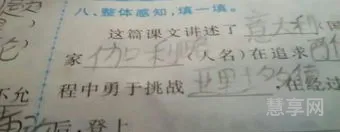 八、整体感知,填一填。
这篇课文讲述了意大利国
家伽利略(人名)在追求
程中勇于挑战亚里士多德,在经过
不允
后,登上
慧享网